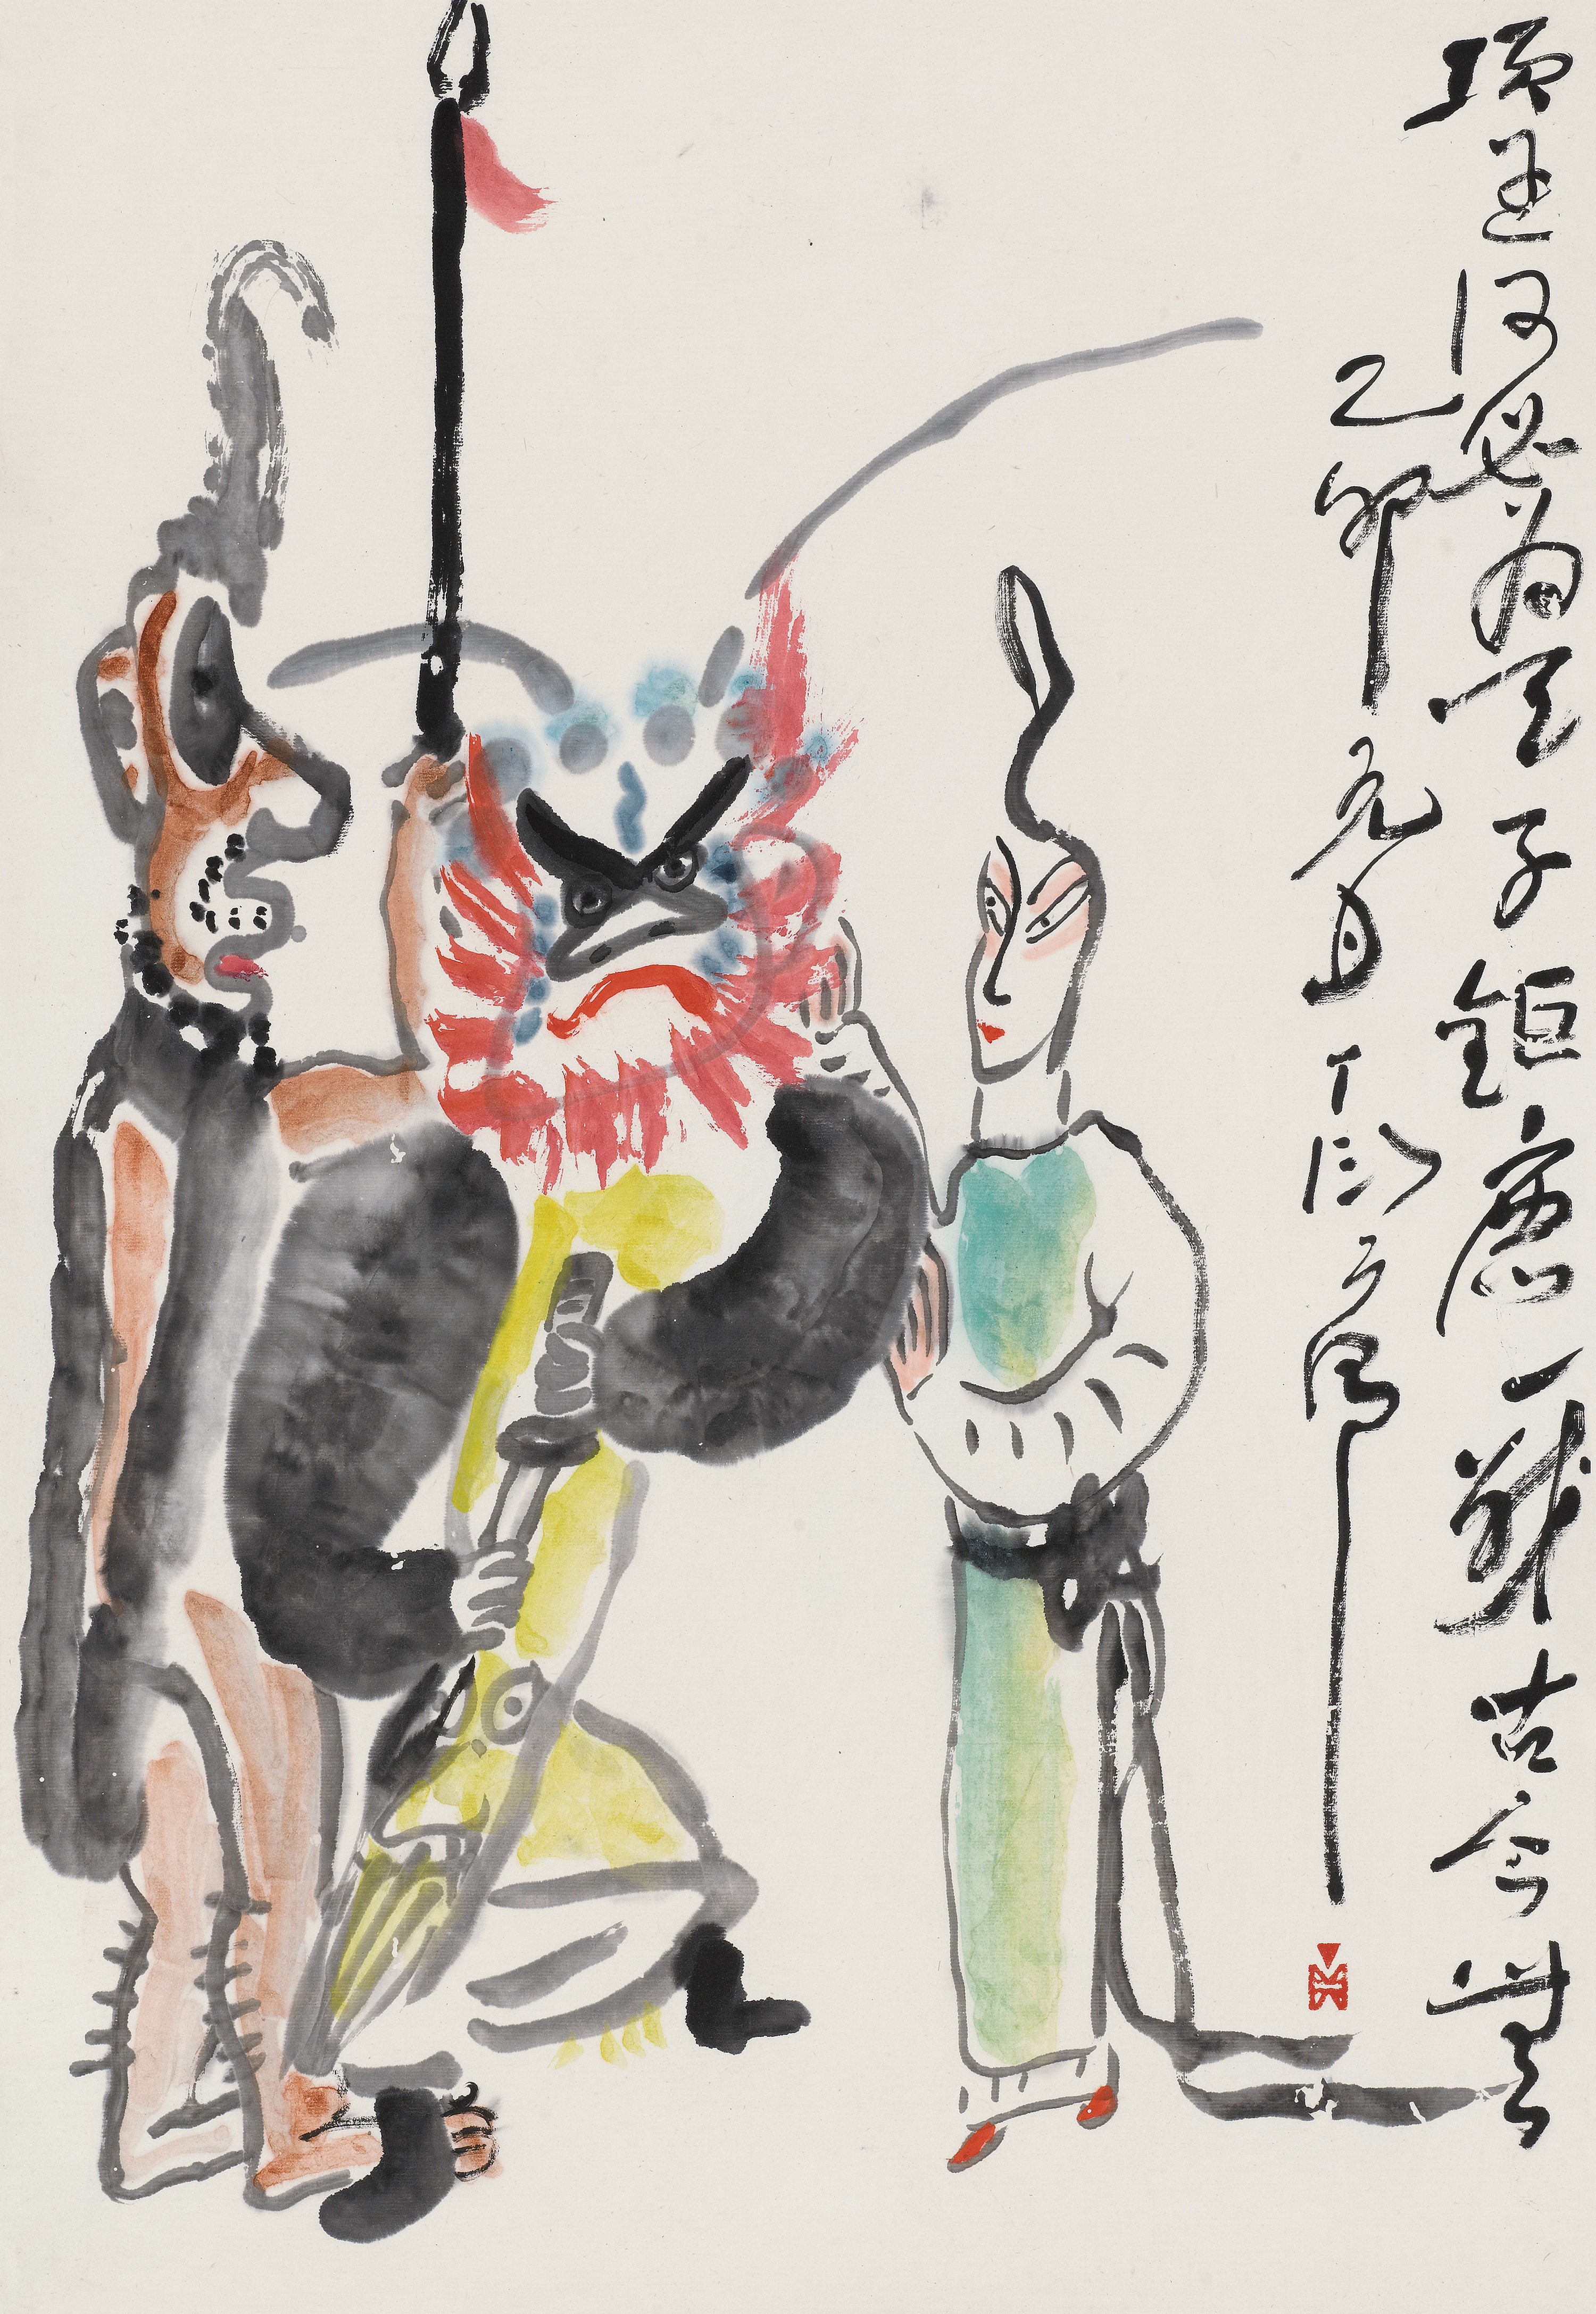 項王何必為天子鉅鹿一戰古今無
乙卯元月丁衍庸